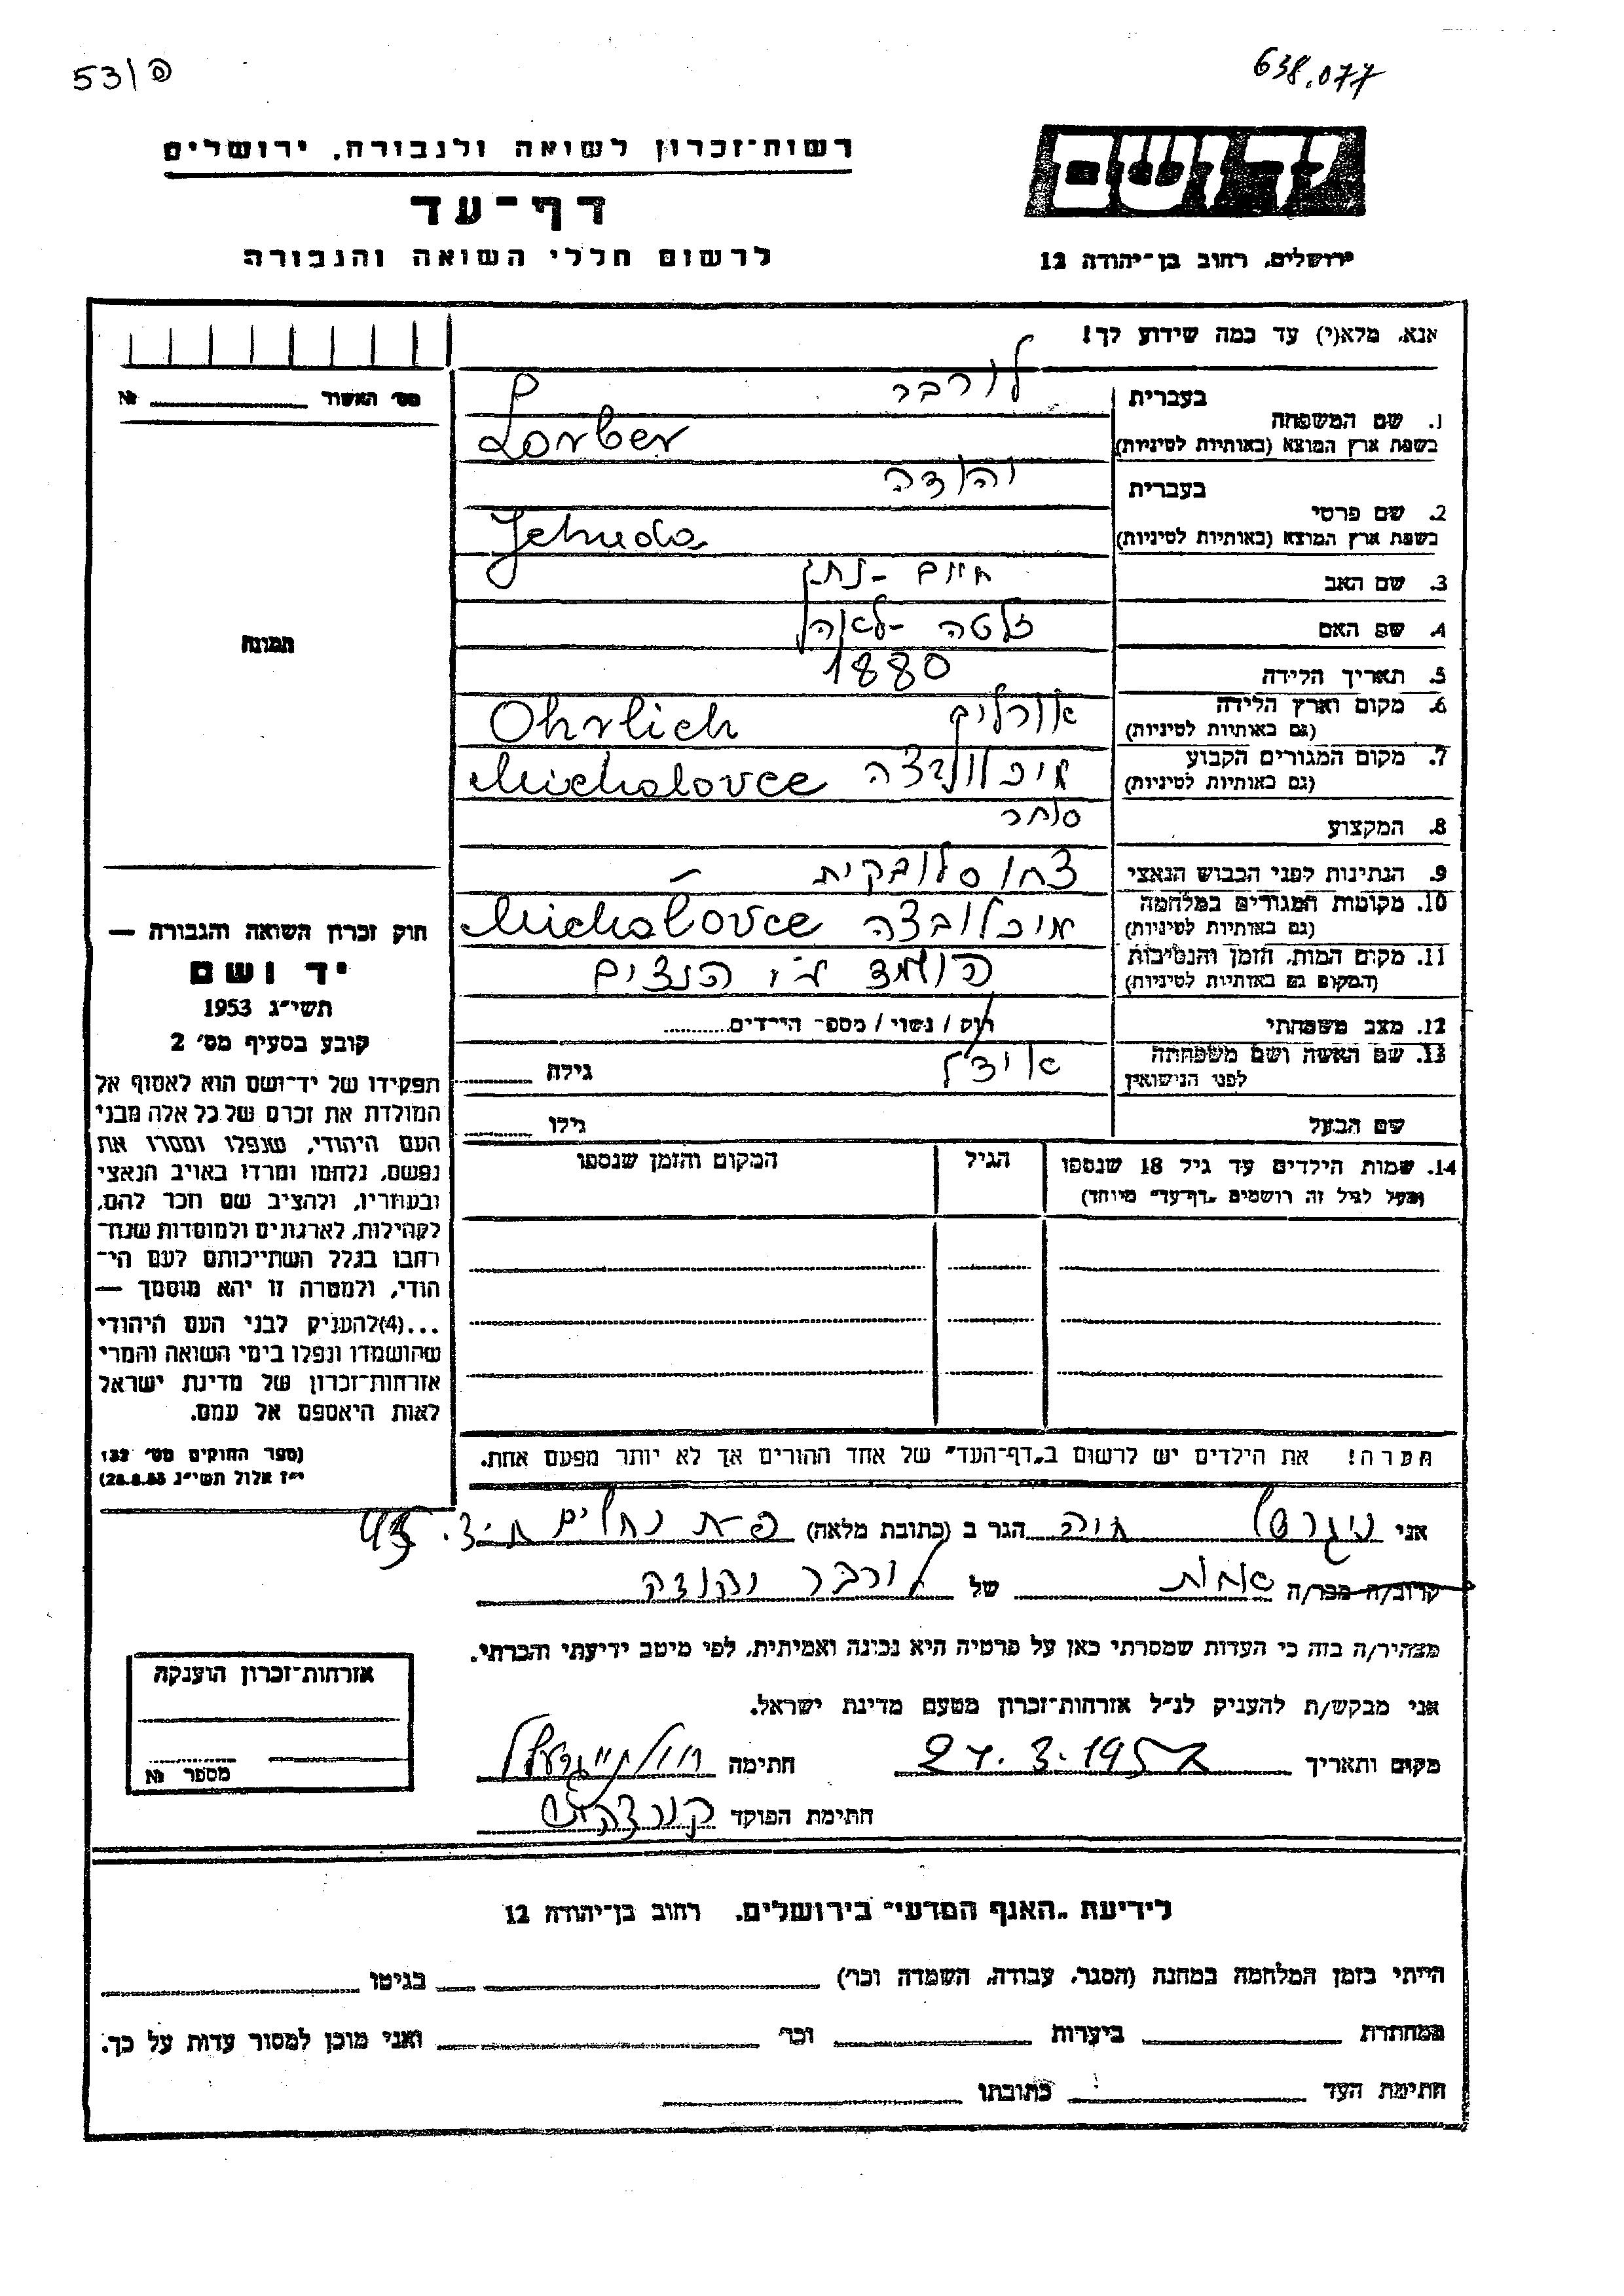 53/פ
638.077
רשות־זכרון לשואה ולגבורה, ירושלים
דף־עד
לרשום חללי השואה והגבורה
יד ושם
ירושלים, רחוב בן־יהודה 12
אנא, מלא(י) עד כמה שידוע לך!
מס׳ האשור № 
1. שם המשפחה
בעברית לורבר
בשפת ארץ המוצא (באותיות לטיניות) Lorber
2. שם פרטי
בעברית יהודה
בשפת ארץ המוצא (באותיות לטיניות) Jehuda
3. שם האב חיים - נתן
4. שם האם זלטה - לאה
5. תאריך הלידה 1880
6. מקום וארץ הלידה
(גם באותיות לטיניות) אורליך Ohrlich
7. מקום המגורים הקבוע
(גם באותיות לטיניות) מיכלובצה Michalovce
8. המקצוע סוחר
9. הנתינות לפני הכבוש הנאצי צ'כוסלובקית
10. מקומות המגורים במלחמה
(גם באותיות לטיניות) מיכלובצה Michalovce
11. מקום המות, הזמן והנסיבות
(המקום גם באותיות לטיניות) הושמד ע"י הנצים
12. מצב משפחתי רווק / נשוי / מספר הילדים
13. שם האשה ושם משפחתה
לפני הנישואין אידל גילה
שם הבעל גילו
14. שמות הילדים עד גיל 18 שנספו
(מעל לגיל זה רושמים „דף־עד״ מיוחד)
הגיל
המקום והזמן שנספו
תמונה
חוק זכרון השואה והגבורה —
יד ושם
תשי״ג 1953
קובע בסעיף מס׳ 2
תפקידו של יד־ושם הוא לאסוף אל
המולדת את זכרם של כל אלה מבני
העם היהודי, שנפלו ומסרו את
נפשם, נלחמו ומרדו באויב הנאצי
ובעוזריו, ולהציב שם וזכר להם,
לקהילות, לארגונים ולמוסדות שנח־
רבו בגלל השתייכותם לעם הי־
הודי, ולמטרה זו יהא מוסמך —
...(4)להעניק לבני העם היהודי
שהושמדו ונפלו בימי השואה והמרי
אזרחות־זכרון של מדינת ישראל
לאות היאספם אל עמם.
(ספר החוקים מס׳ 132
י״ז אלול תשי״ג 28.8.53)
הערה! את הילדים יש לרשום ב„דף־העד״ של אחד ההורים אך לא יותר מפעם אחת.
אני חיה הגר ב (כתובת מלאה)
קרוב/ה מכר/ה אחות של לורבר יהודה
מצהיר/ה בזה כי העדות שמסרתי כאן על פרטיה היא נכונה ואמיתית, לפי מיטב ידיעתי והכרתי.
אני מבקש/ת להעניק לנ״ל אזרחות־זכרון מטעם מדינת ישראל.
מקום ותאריך חתימה
חתימת הפוקד
אזרחות־זכרון הוענקה
מספר №
לידיעת „האגף המדעי״ בירושלים, רחוב בן־יהודה 12
הייתי בזמן המלחמה במחנה (הסגר, עבודה, השמדה וכו׳) בגיטו
במחתרת ביערות וכו׳ ואני מוכן למסור עדות על כך.
חתימת העד כתובתו